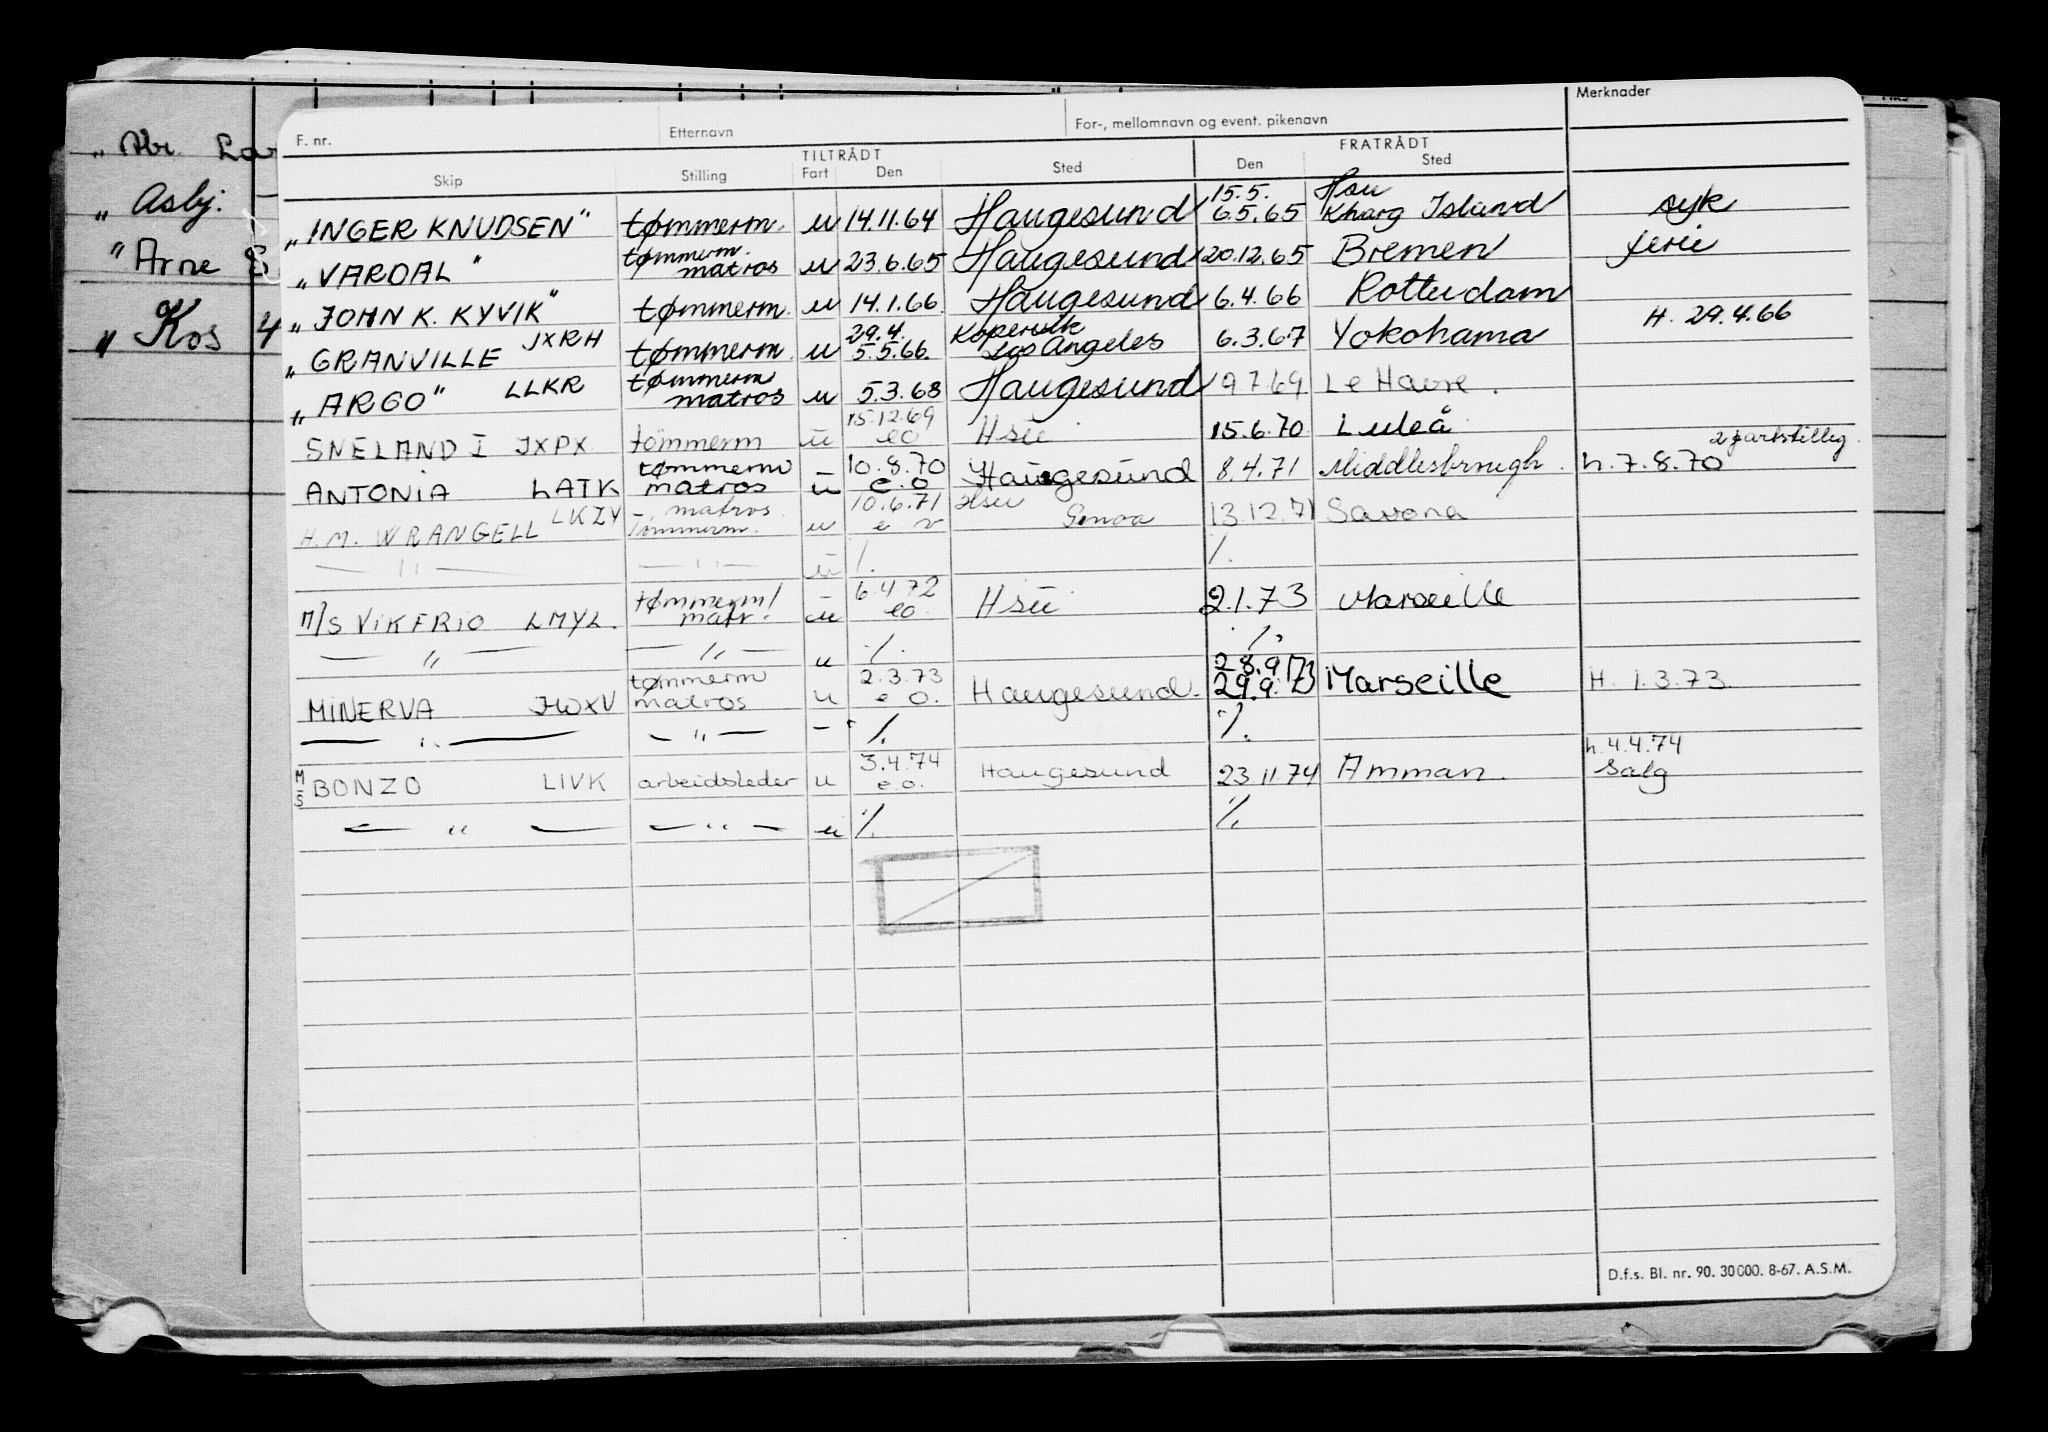 " Abr. Lar
" Asbj.
" Arne E
" Kos 4
Merknader
F. nr. Etternavn For-, mellomnavn og event. pikenavn
TILTRÅDT FRATRÅDT
Skip Stilling Fart Den Sted Den Sted
15.5. Hsu
"INGER KNUDSEN" tømmerm. u 14.11.64 Haugesund 6.5.65 Kharg Island syk
tømmerm.
"VARDAL" matros u 23.6.65 Haugesund 20.12.65 Bremen ferie
"JOHN K. KYVIK" tømmerm. u 14.1.66 Haugesund 6.4.66 Rotterdam
29.4. Kopervik
"GRANVILLE JXRH tømmerm. u 5.5.66. Los Angeles 6.3.67 Yokohama H. 29.4.66
tømmerm
"ARGO" LLKR matros u 5.3.68 Haugesund 19.7.69 Le Havre.
15.12.69
SNELAND I JXPX tømmerm u eo Hsu 15.6.70 Luleå
tømmerm 10.8.70 2 fartstilleg.
ANTONIA LATK matros u e.o Haugesund 8.4.71 Middlesbrough. h.7.8.70
LKZY matros 10.6.71 Hsu
H.M. WRANGELL Tømmerm. u e v Genoa 13.12.71 Savona
— " — — " — u %. %.
tømmerm/ 6.4.72
M/S VIKFRIO LMYL. matr. u eo. Hsu 2.1.73 Marseille
— " — — " — u %. %.
tømmerm 2.3.73 28.9.73
MINERVA JWXV matros u e o. Haugesund. 29.9.73 Marseille H. 1.3.73.
— " — — " — - " %. %.
3.4.74 h.4.4.74
M/S BONZO LIVK arbeidsleder u e.o. Haugesund 23.11.74 Amman. Salg
— " — — " — u %. %.
D.f.s. Bl. nr. 90. 30000. 8-67. A.S.M.